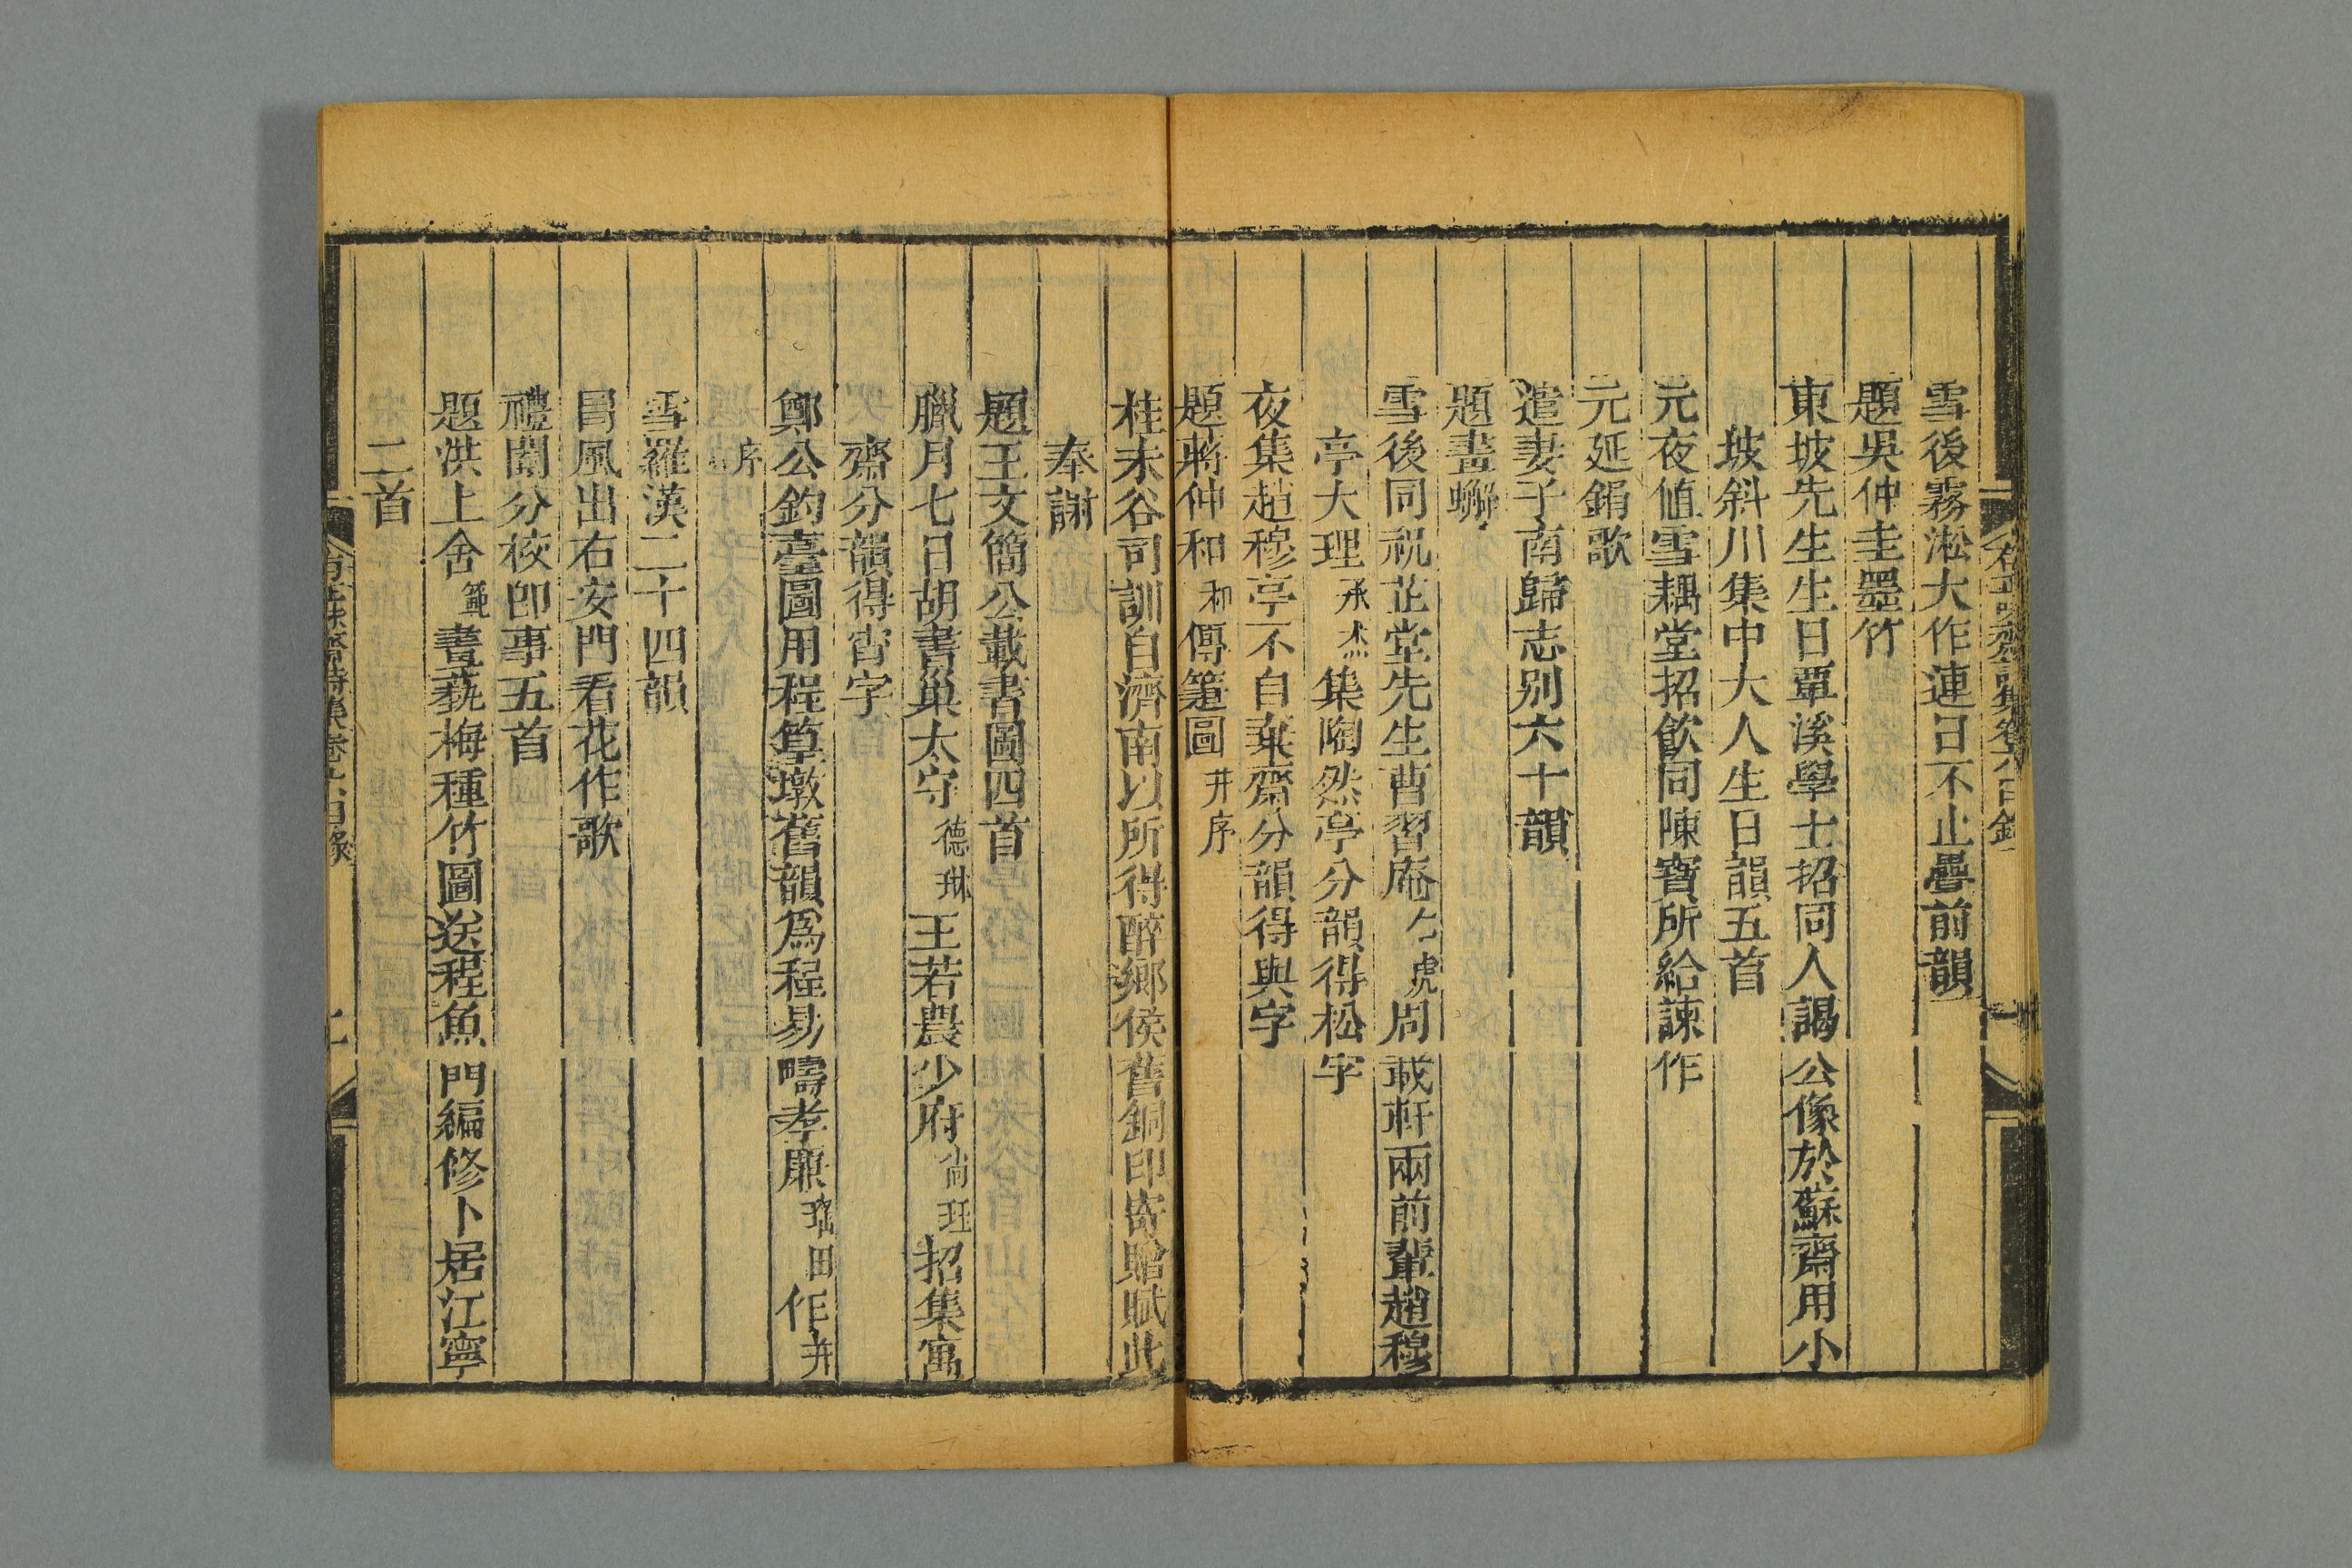 雪後霧淞大作連日不止疊前韻
題吳仲圭墨竹
東坡先生生日覃溪學士招同人謁公像於蘇齋用小
坡斜川集中大人生日韻五首
元夜值雪耦堂招飲同陳寶所給諫作
元延鋗歌
遣妻子南歸志别六十韻
題畫蠏
雪後同祝芷堂先生曹習庵仁虎周載軒兩前輩趙穆
亭大理承杰集陶然亭分韻得松字
夜集趙穆亭不自棄齋分韻得與字
題蔣仲和和傳箑圖并序
桂未谷司訓自濟南以所得醉鄉侯舊銅印寄贈賦此
奉謝
題王文簡公載書圖四首
臘月七日胡書巢太守德琳王若農少府尚玨招集寓
齋分韻得宵字
鄭公釣臺圖用程篁墩舊韻為程易疇孝廉瑤田作并
序
雪羅漢二十四韻
冒風出右安門看花作歌
禮闈分校卽事五首
題洪上舍範畫蓺梅種竹圖送程魚門編修卜居江寧
二首
有正味齋詩集卷六目錄